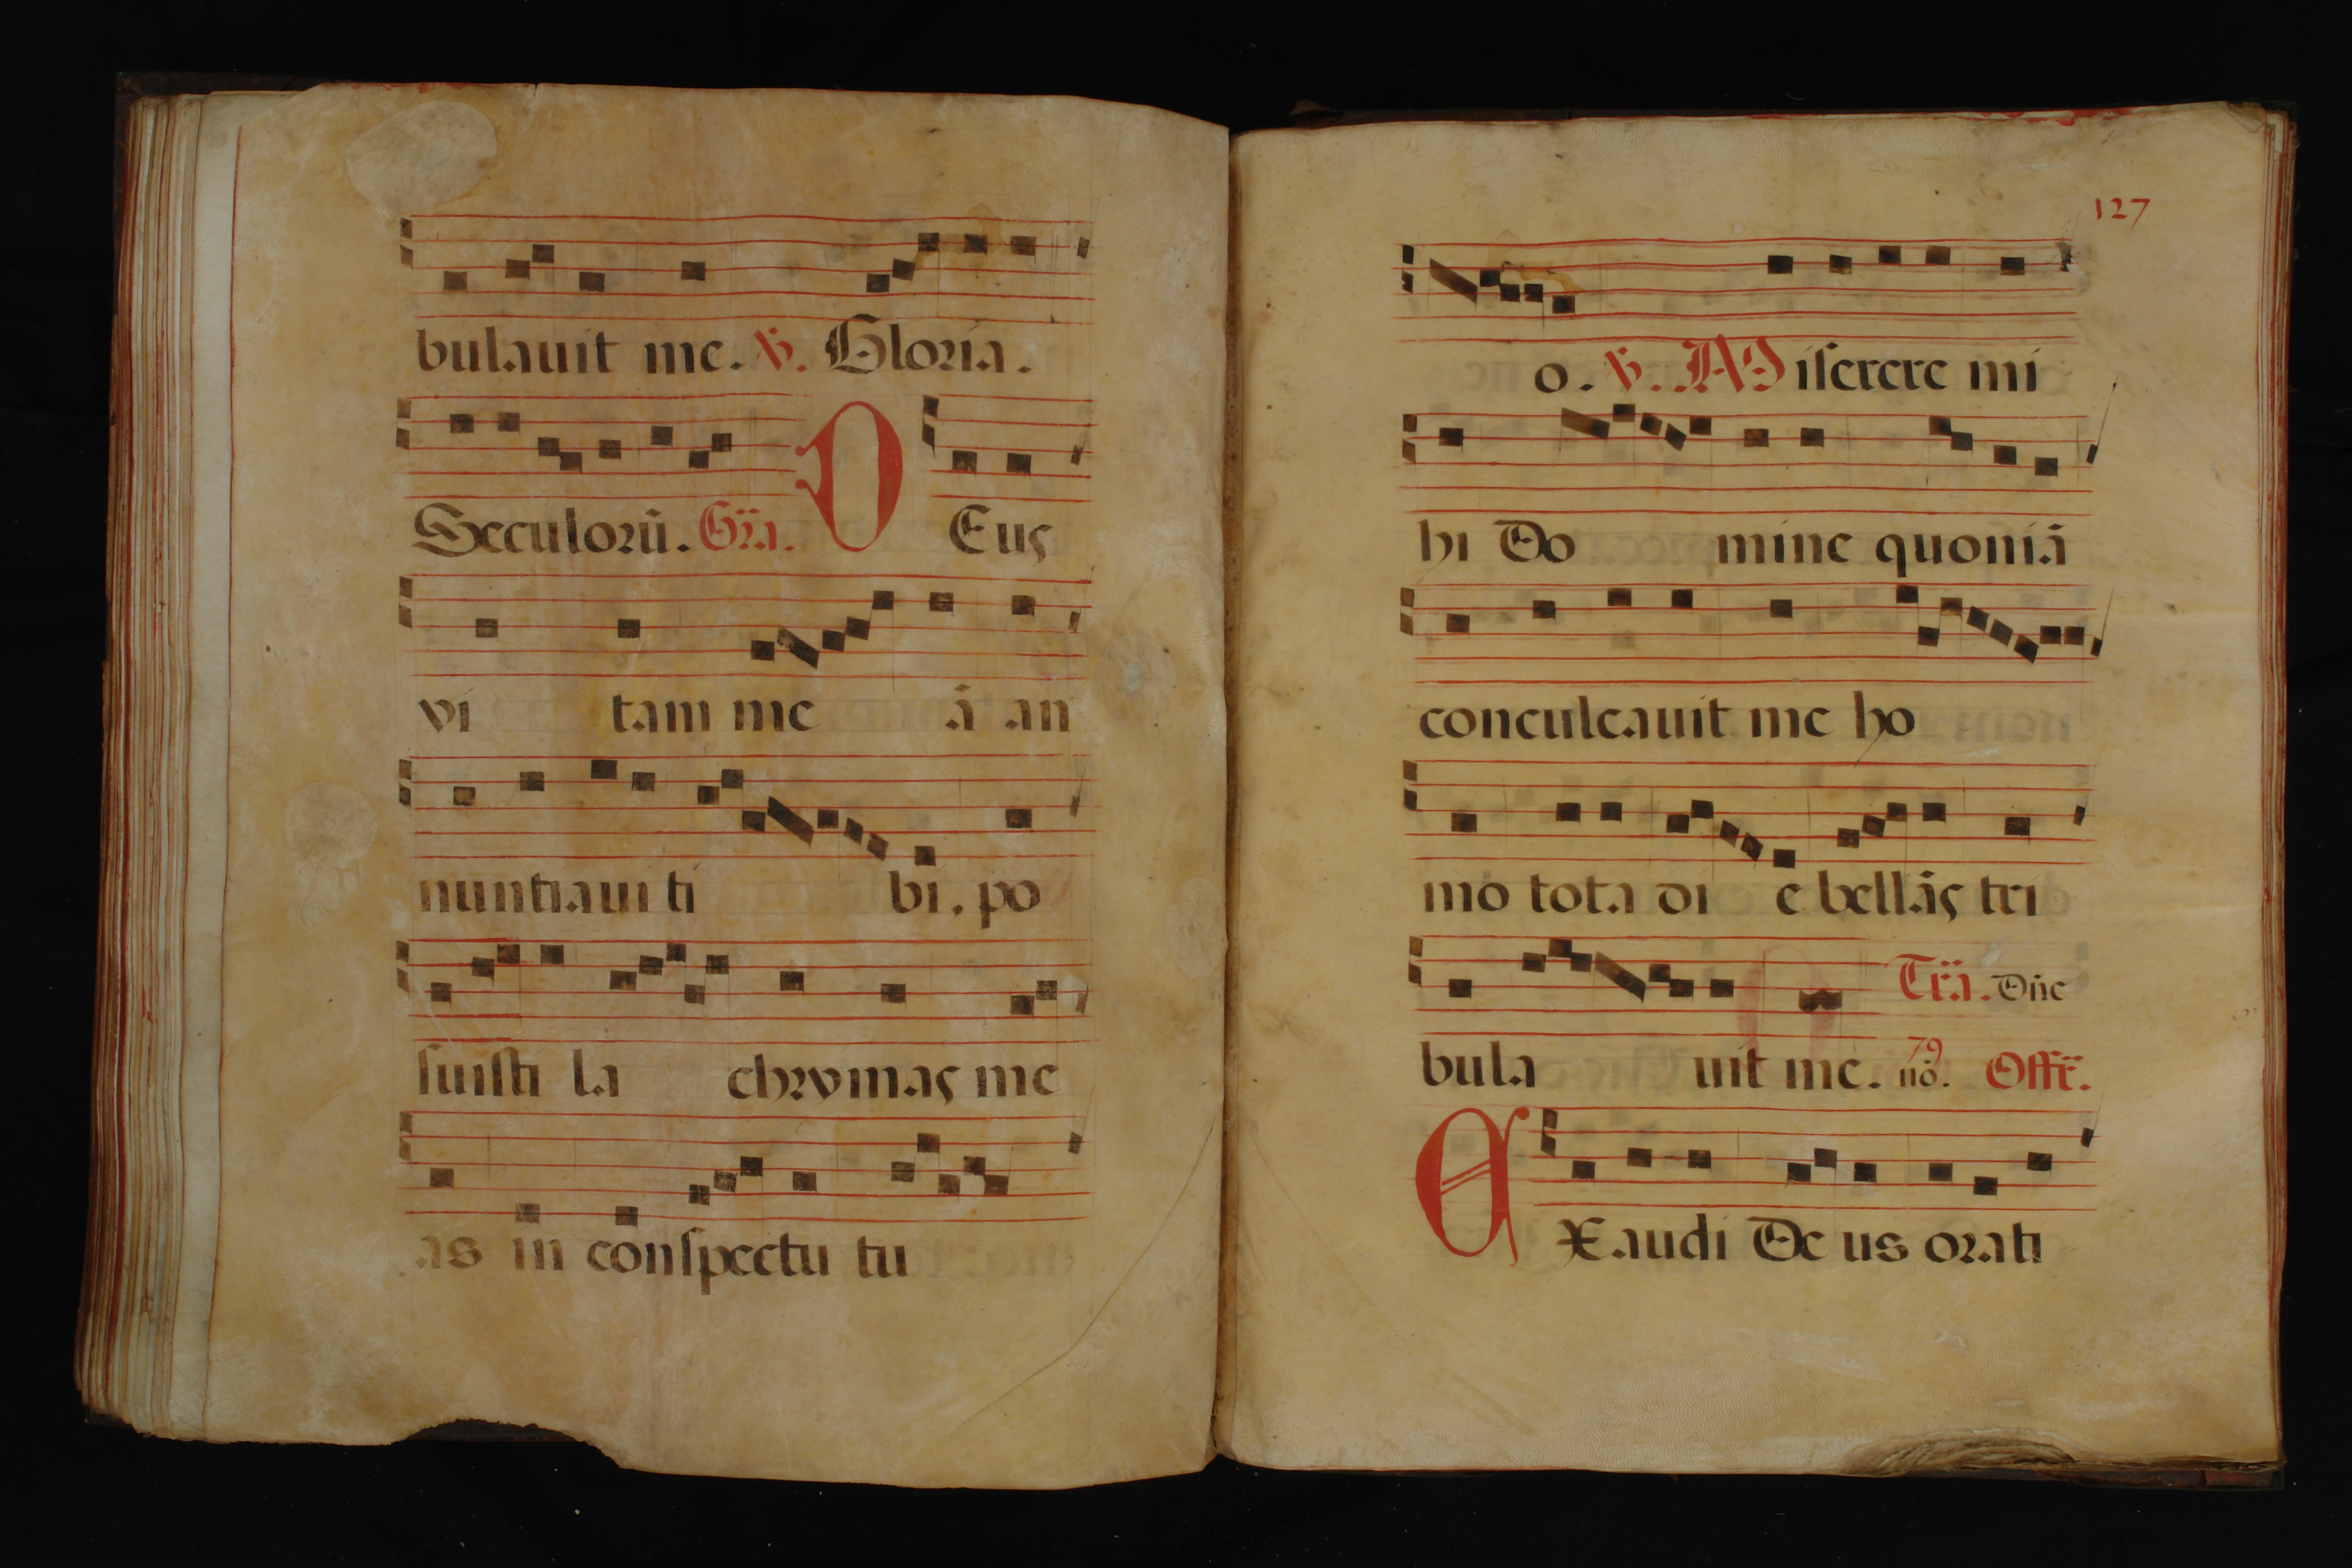 bulauit me. ℣. Gloria.
Seculorū. Gra. D Eus
vi tam me ā an
nuntiaui ti bi. po
suisti la chrymas me
as in conspectu tu
127
o. ℣. Miserere mi
hi Do mine quoniā
conculcauit me ho
mo tota di e bellās tri
Tra. Dñe
bula uit me. nō. 79 Offr.
E Xaudi De us orati